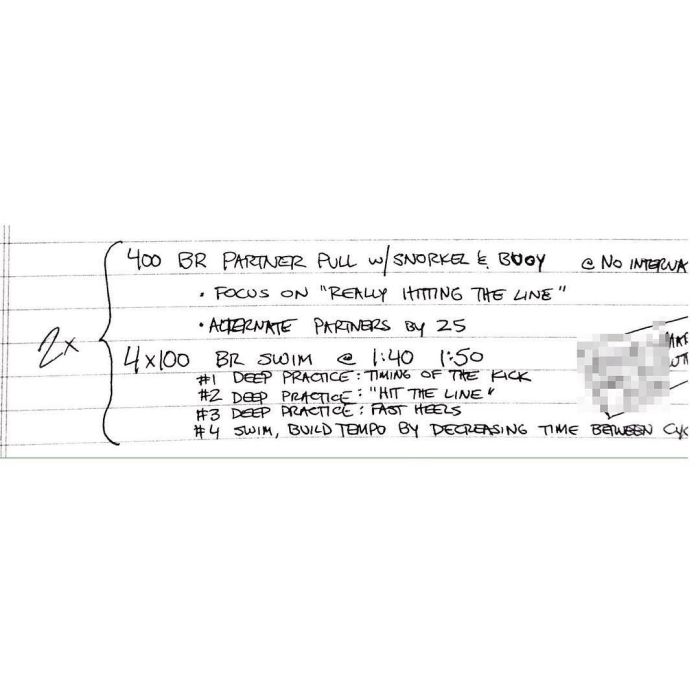 400 BR PARTNER PULL w/ SNORKEL & BUOY @ NO INTERVA
• FOCUS ON "REALLY HITTING THE LINE"
• ALTERNATE PARTNERS BY 25
2x
4x100 BR SWIM @ 1:40 1:50
#1 DEEP PRACTICE: TIMING OF THE KICK
#2 DEEP PRACTICE: "HIT THE LINE"
#3 DEEP PRACTICE: FAST HEELS
#4 SWIM, BUILD TEMPO BY DECREASING TIME BETWEEN CYC